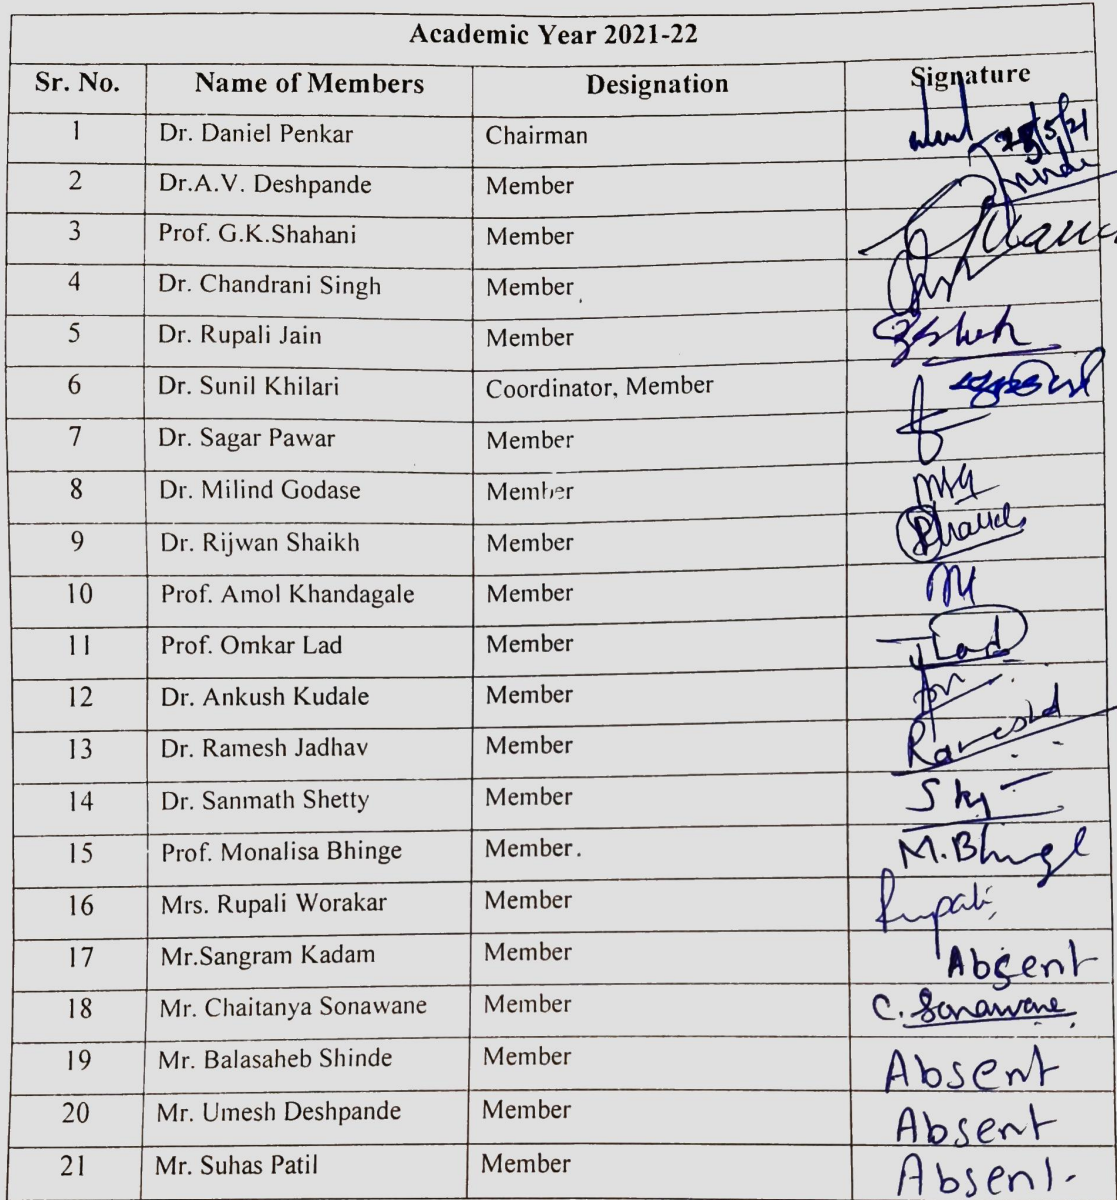 Academic Year 2021-22
Sr. No. Name of Members Designation Signature
1 Dr. Daniel Penkar Chairman
2 Dr.A.V. Deshpande Member
3 Prof. G.K.Shahani Member
4 Dr. Chandrani Singh Member
5 Dr. Rupali Jain Member
6 Dr. Sunil Khilari Coordinator, Member
7 Dr. Sagar Pawar Member
8 Dr. Milind Godase Member
9 Dr. Rijwan Shaikh Member
10 Prof. Amol Khandagale Member
11 Prof. Omkar Lad Member Lad
12 Dr. Ankush Kudale Member
13 Dr. Ramesh Jadhav Member
14 Dr. Sanmath Shetty Member
15 Prof. Monalisa Bhinge Member. M.Bhinge
16 Mrs. Rupali Worakar Member Rupali
17 Mr.Sangram Kadam Member Absent
18 Mr. Chaitanya Sonawane Member C. Sonawane
19 Mr. Balasaheb Shinde Member Absent
20 Mr. Umesh Deshpande Member Absent
21 Mr. Suhas Patil Member Absent